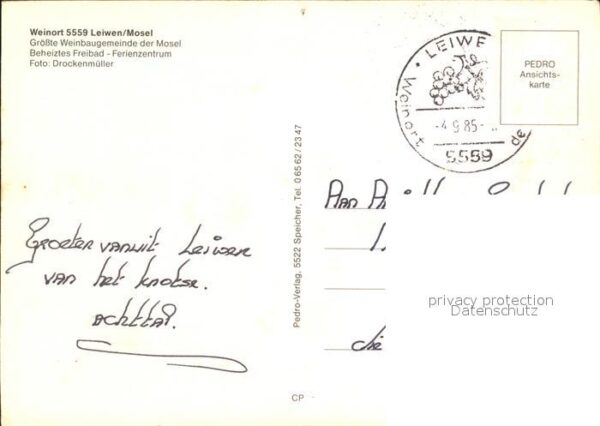 Weinort 5559 Leiwen/Mosel
Größte Weinbaugemeinde der Mosel
Beheiztes Freibad - Ferienzentrum
Foto: Drockenmüller
LEIWE
Weinort
de
-4.9.85-
5559
PEDRO
Ansichts-
karte
Pedro-Verlag, 5522 Speicher, Tel. 0 65 62 / 23 47
Aan
Groeten vanuit Leiwen
van het
privacy protection
Datenschutz
die
CP